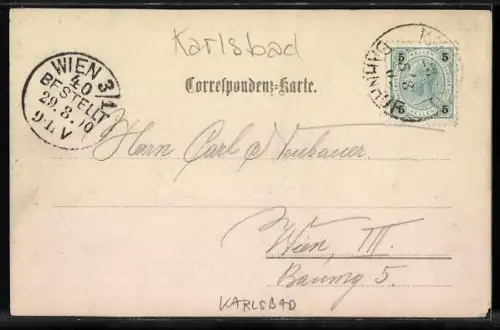 Karlsbad
Correspondenz-Karte.
WIEN 3/1
40
BESTELLT
29.8.00
9-11.V
5 5
HELLER
5 5
BAHNHOF
Herrn Carl Neubauer
Wien, III.
Baumg 5.
KARLSBAD